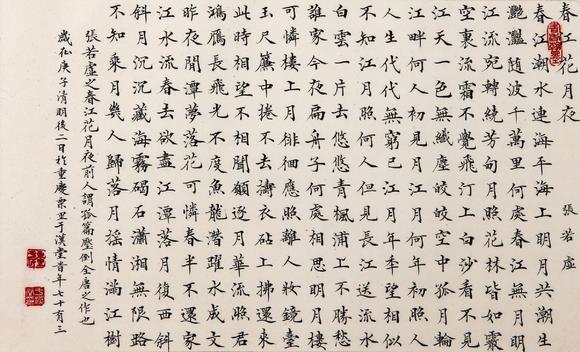 春江花月夜 張若虛
春江潮水連海平海上明月共潮生
灩灩随波千萬里何處春江無月明
江流宛轉繞芳甸月照花林皆如霰
空裏流霜不覺飛汀上白沙看不見
江天一色無纖塵皎皎空中孤月輪
江畔何人初見月江月何年初照人
人生代代無窮已江月年秊望相似
不知江月照何人但見長江送流水
白雲一片去悠悠青楓浦上不勝愁
誰家今夜扁舟子何處相思明月樓
可憐樓上月徘徊應照離人妝鏡臺
玉戶簾中捲不去擣衣砧上拂還來
此時相望不相聞願逐月華流照君
鴻雁長飛光不度魚龍潛躍水成文
昨夜閒潭夢落花可憐春半不還家
江水流春去欲盡江潭落月復西斜
斜月沉沉藏海霧碣石瀟湘無限路
不知乘月幾人歸落月搖情滿江樹
張若虛之春江花月夜前人謂孤篇壓倒全唐之作也
歲在庚子清明後二日於重慶栗里于漢堂旹年七十有三